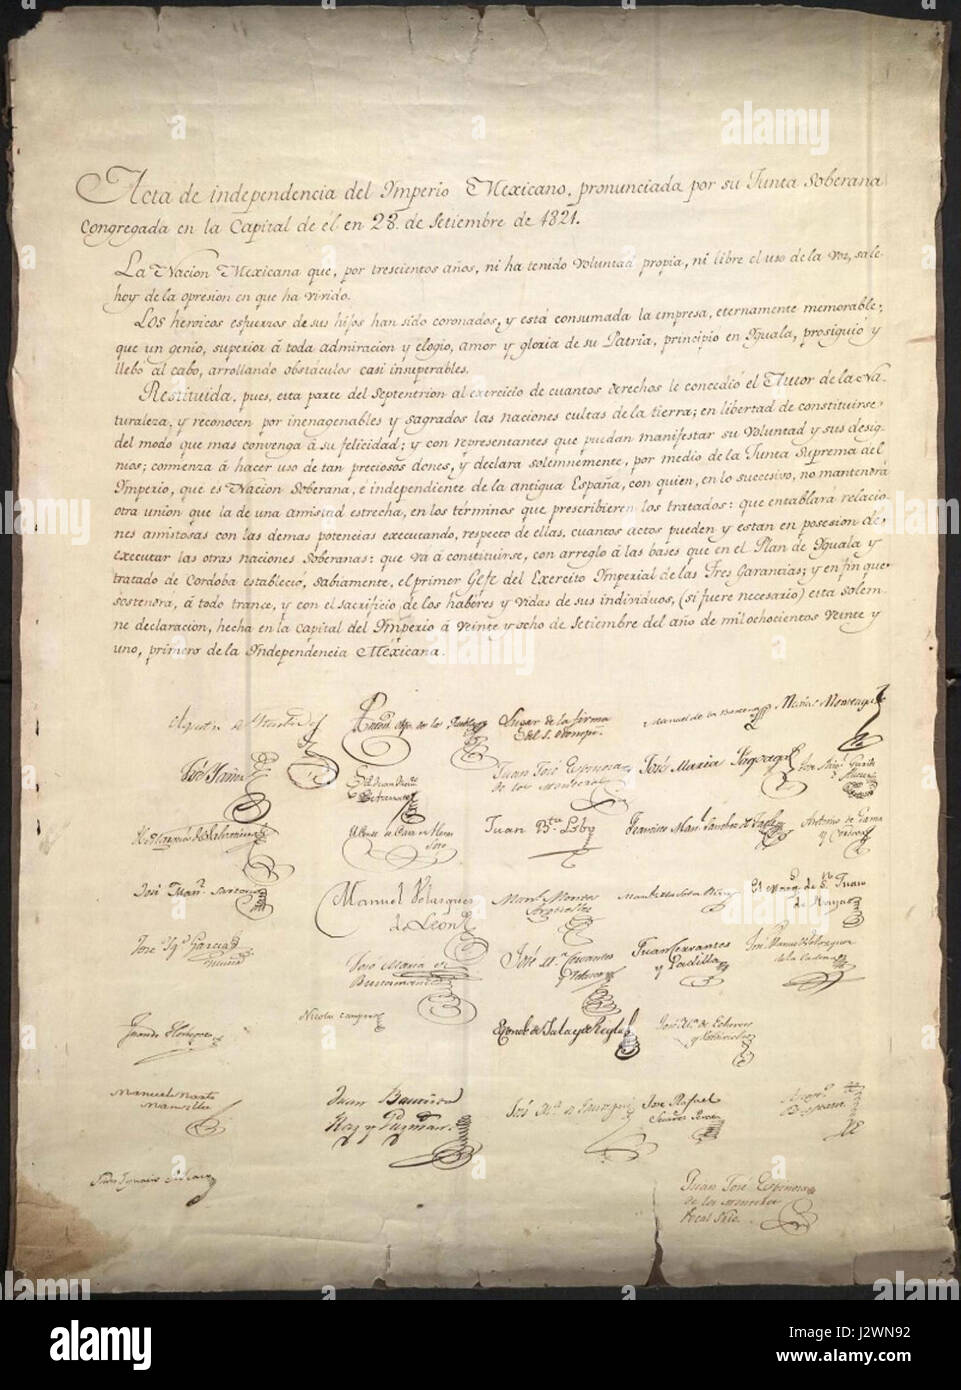 Acta de independencia del Imperio Mexicano, pronunciada por su Junta Soberana
congregada en la Capital de él en 28. de Setiembre de 1821.
La Nacion Mexicana que, por trescientos años, ni ha tenido voluntad propia, ni libre el uso de la voz, sale
hoy de la opresion en que ha vivido.
Los heroicos esfuerzos de sus hijos han sido coronados, y está consumada la empresa, eternamente memorable,
que un genio, superior á toda admiracion y elogio, amor y gloria de su Patria, principió en Iguala, prosiguió y
llebó al cabo, arrollando obstáculos casi insuperables.
Restituida, pues, esta parte del Septentrion al exercicio de cuantos derechos le concedió el Autor de la Na-
turaleza, y reconocen por inenagenables y sagrados las naciones cultas de la tierra; en libertad de constituirse
del modo que mas convenga á su felicidad; y con representantes que puedan manifestar su voluntad y sus desig-
nios; comienza á hacer uso de tan preciosos dones, y declara solemnemente, por medio de la Junta Suprema del
Imperio, que es Nacion Soberana, é independiente de la antigua España, con quien, en lo succesivo, no mantendrá
otra union que la de una amistad estrecha, en los terminos que prescribieren los tratados: que entablará relacio-
nes amistosas con las demas potencias executando, respecto de ellas, cuantos actos pueden y estan en posesion de
executar las otras naciones Soberanas: que vá á constituirse, con arreglo á las bases que en el Plan de Iguala y
tratado de Cordoba estableció, sabiamente, el primer Gefe del Exercito Imperial de las Tres Garantias; y en fin que
sostendrá, á todo trance, y con el sacrificio de los habéres y vidas de sus individuos, (si fuere necesario) esta solem-
ne declaracion, hecha en la Capital del Imperio á veinte y ocho de Setiembre del año de mil ochocientos veinte y
uno, primero de la Independencia Mexicana.
Lugar de la firma
del S. Odonojú
Manuel de la Barcena
Matias Monteagudo
José Yañez
Juan José Espinosa
de los Monteros
José Maria Fagoaga
Juan Bta. Lobo
Francisco Man. Sanchez de Tagle
Antonio de Gama
y Cordova
José Man. Sartorio
Manuel Velasquez
de Leon
Manl. Montes
Argüelles
El Marq. de Sn. Juan
de Rayas
José Igo. Garcia
José Maria de
Bustamante
José Ma. Cervantes
y Velasco
Juan Cervantes
y Padilla
José Manuel Velazquez
de la Cadena
Nicolas Campero
El conde de Jala y de Regla
José Ma. de Echevers
y Valdivielso
Manuel Martz.
Mansilla
Juan Bautista
Raz y Guzman.
José Ma. de Jauregui
José Rafael
Suarez Pereda
Juan José Espinosa
de los Monteros
Vocal Srio.
alamy
alamy
Image ID: J2WN92
www.alamy.com